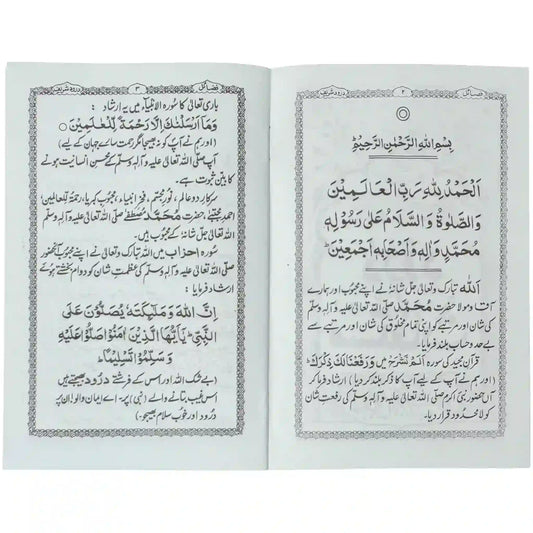 فضائل ۲ درود شریف
بِسْمِ اللهِ الرَّحْمٰنِ الرَّحِيْمِ
اَلْحَمْدُ لِلّٰهِ رَبِّ الْعَالَمِيْنَ
وَالصَّلٰوةُ وَالسَّلَامُ عَلٰى رَسُوْلِهٖ
مُحَمَّدٍ وَّاٰلِهٖ وَاَصْحَابِهٖ اَجْمَعِيْنَ ؕ
اللہ تبارک وتعالیٰ جل شانہٗ نے اپنے محبوب اور ہمارے
آقا و مولا حضرت محمد صلی اللہ تعالیٰ علیہ و آلہٖ وسلم
کی شان اور مرتبے کو اپنی تمام مخلوق کی شان اور مرتبے سے
بے حد و حساب بلند فرمایا۔
قرآن مجید کی سورہ اَلَمْ نَشْرَحْ میں وَرَفَعْنَا لَكَ ذِكْرَكَ ؕ
(اور ہم نے آپ کے لیے آپ کا ذکر بلند کر دیا) ارشاد فرما کر
آں حضور نبی کریم صلی اللہ تعالیٰ علیہ و آلہٖ وسلم کی رفعتِ شان
کو لا محدود قرار دیا۔
فضائل ۳ درود شریف
باری تعالیٰ کا سورہ الانبیاء میں یہ ارشاد :
وَمَا اَرْسَلْنٰكَ اِلَّا رَحْمَةً لِّلْعٰلَمِيْنَ ○
(اور ہم نے آپ کو نہ بھیجا مگر رحمت سارے جہان کے لیے)
آپ صلی اللہ تعالیٰ علیہ و آلہٖ وسلم کے محسن انسانیت ہونے
کا بین ثبوت ہے۔
سرکارِ دو عالم، نورِ مجسم، فخرِ انبیاء، محبوبِ کبریا، رحمۃ للعالمین
احمد مجتبیٰ، حضرت محمد مصطفے صلی اللہ تعالیٰ علیہ و آلہٖ وسلم
ہی ہیں، جو اللہ تعالیٰ جل شانہٗ کے محبوب ہیں۔
سورہ احزاب میں اللہ تبارک وتعالیٰ نے اپنے محبوب آنحضور
صلی اللہ تعالیٰ علیہ و آلہٖ وسلم کی عظمتِ شان کو دوام بخشتے ہوئے
ارشاد فرمایا :
اِنَّ اللهَ وَمَلٰٓئِكَتَهٗ يُصَلُّوْنَ عَلَى
النَّبِيِّ ؕ يٰٓاَيُّهَا الَّذِيْنَ اٰمَنُوْا صَلُّوْا عَلَيْهِ
وَسَلِّمُوْا تَسْلِيْمًا ○
(بے شک اللہ اور اس کے فرشتے درود بھیجتے ہیں
اس غیب بتانے والے (نبی) پر، اے ایمان والو! ان پر
درود اور خوب سلام بھیجو۔)